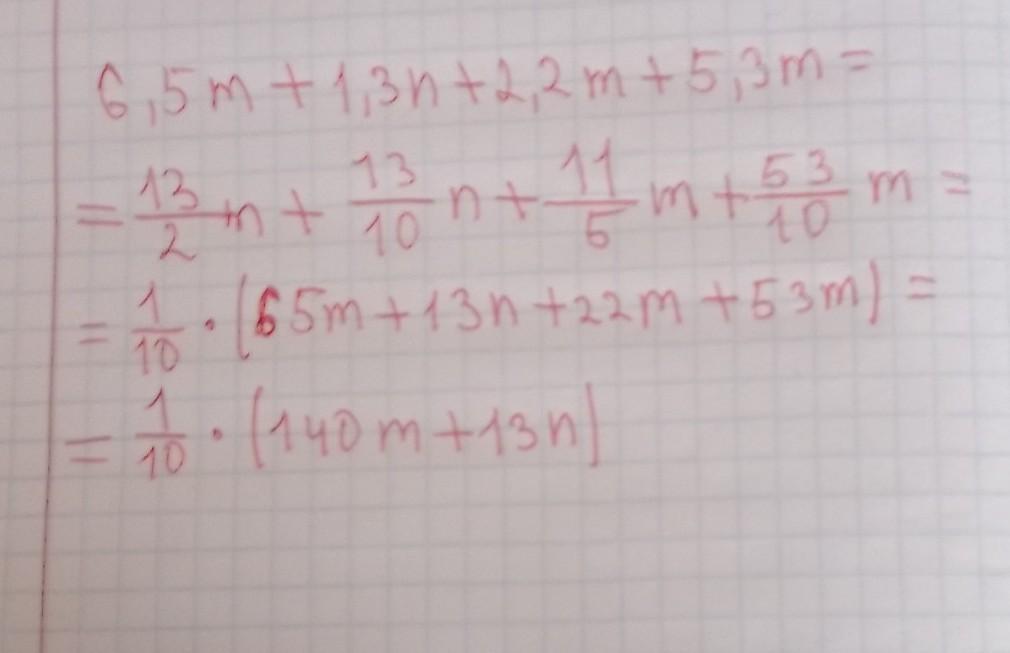 6,5m + 1,3n + 2,2m + 5,3m =
= 13/2 m + 13/10 n + 11/5 m + 53/10 m =
= 1/10 · (65m + 13n + 22m + 53m) =
= 1/10 · (140m + 13n)